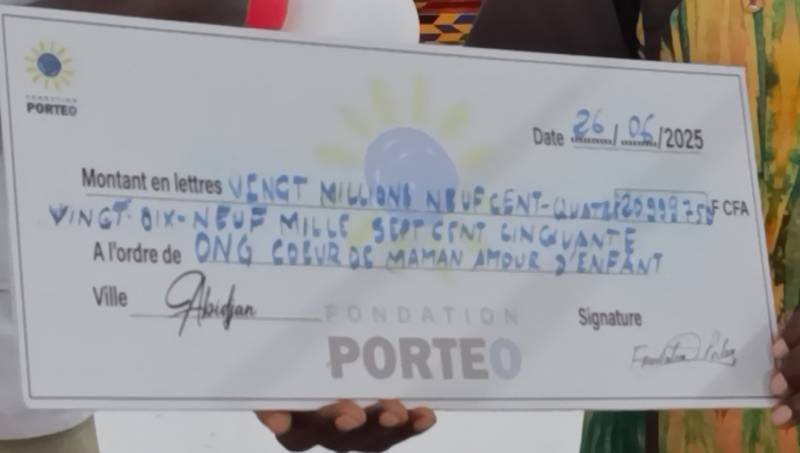 FONDATION
PORTEO
Date 26/06/2025
Montant en lettres VINGT MILLIONS NEUF CENT-QUATRE 20999750 F CFA
VINGT-DIX-NEUF MILLE SEPT CENT CINQUANTE
A l'ordre de ONG COEUR DE MAMAN AMOUR D'ENFANT
Ville Abidjan
Signature
FONDATION
PORTEO